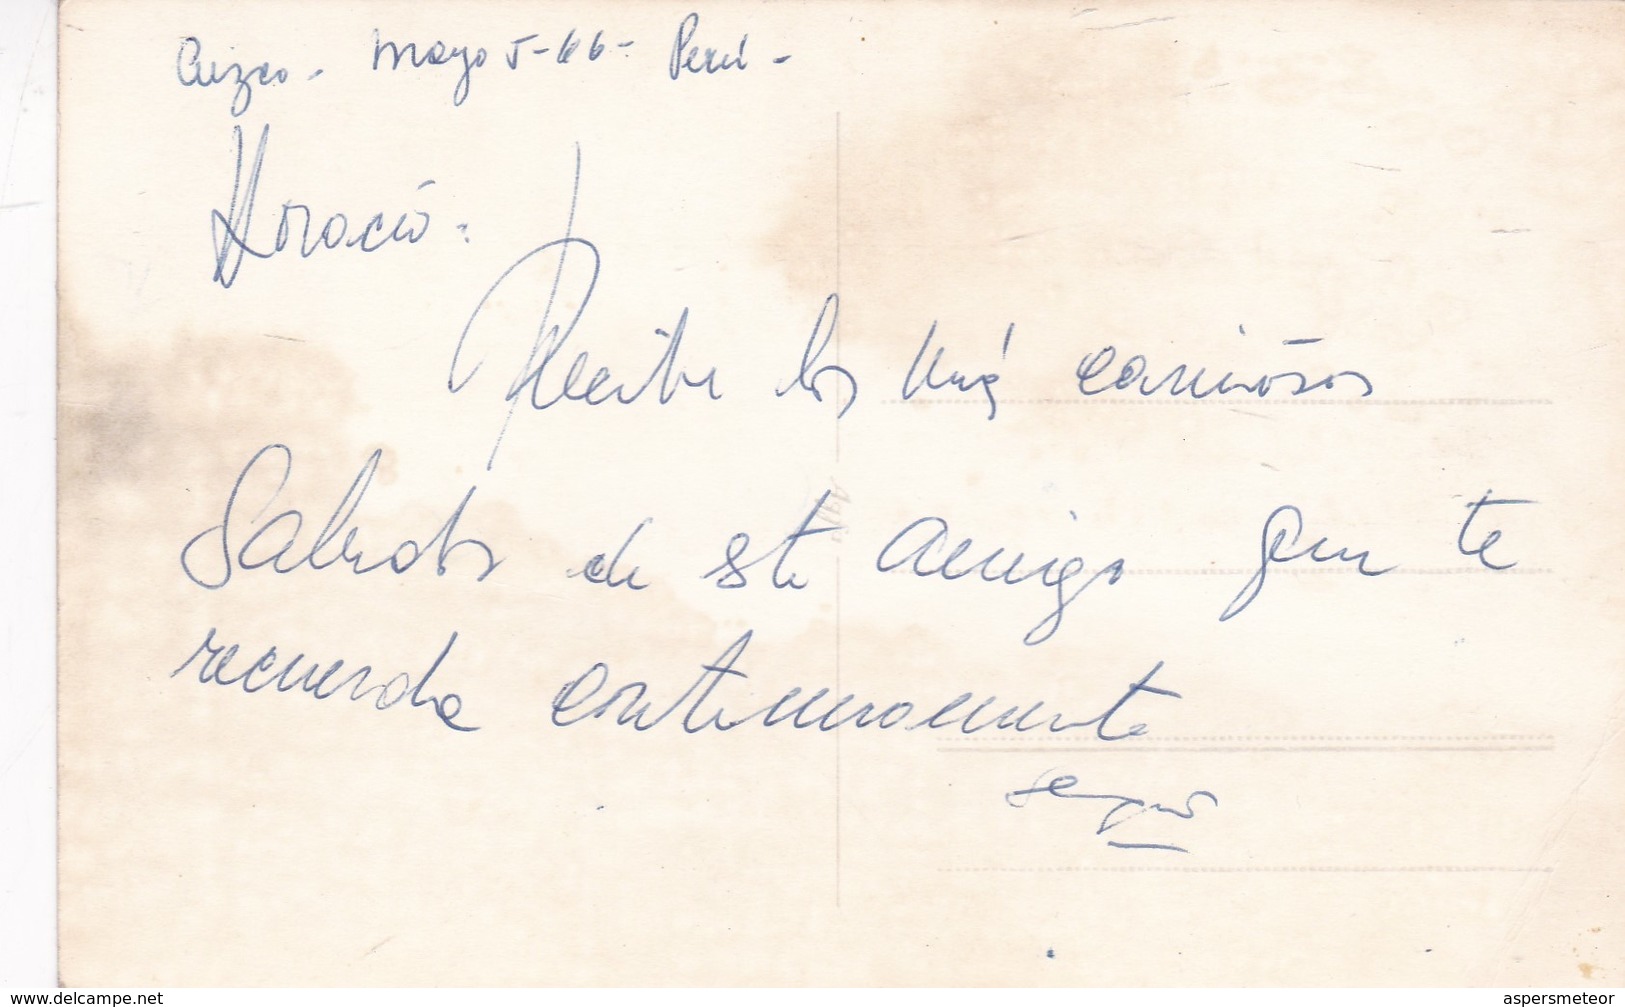 Cuzco - Mayo 5-66 - Perú -
Horacio:
Recibe los más cariñosos
Saludos de este amigo que te
recuerda continuamente
Sergio
www.delcampe.net
aspersmeteor